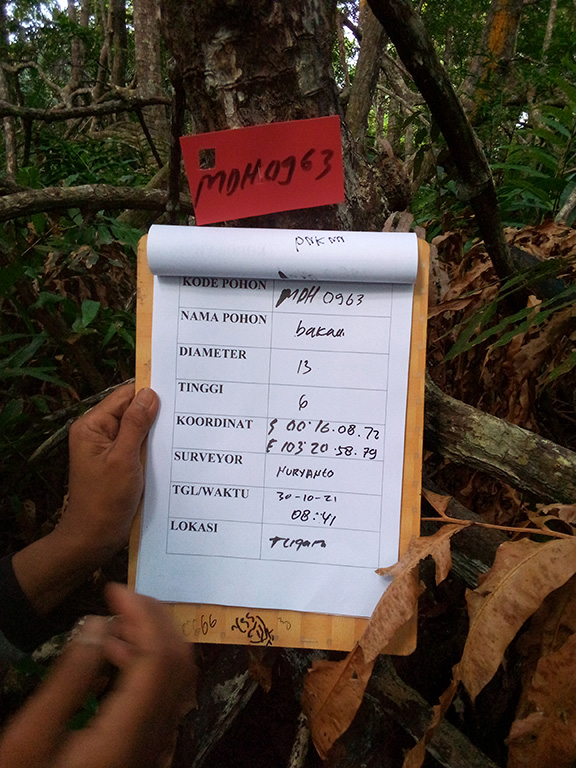 MDH0963
KODE POHON MDH 0963
NAMA POHON bakau
DIAMETER 13
TINGGI 6
KOORDINAT S 00°16.08.72
E 103°20.58.79
SURVEYOR NURYANTO
TGL/WAKTU 30-10-21
08:41
LOKASI